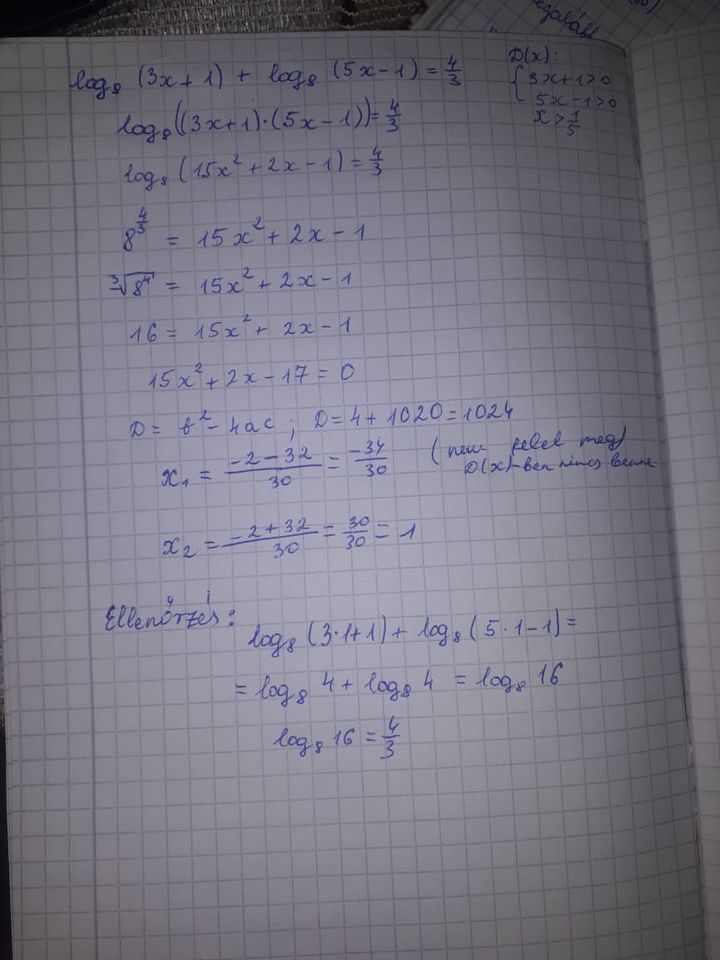 log₈ (3x+1) + log₈ (5x-1) = 4/3
D(x):
{ 3x+1>0
5x-1>0
x > 1/5
log₈((3x+1)·(5x-1)) = 4/3
log₈ (15x²+2x-1) = 4/3
8^(4/3) = 15x²+2x-1
∛8⁴ = 15x²+2x-1
16 = 15x²+2x-1
15x²+2x-17=0
D = b²-4ac ; D=4+1020=1024
x₁ = (-2-32)/30 = -34/30 (nem felel meg)
D(x)-ben nincs benne
x₂ = (-2+32)/30 = 30/30 = 1
Ellenőrzés:
log₈ (3·1+1) + log₈ (5·1-1) =
= log₈ 4 + log₈ 4 = log₈ 16
log₈ 16 = 4/3